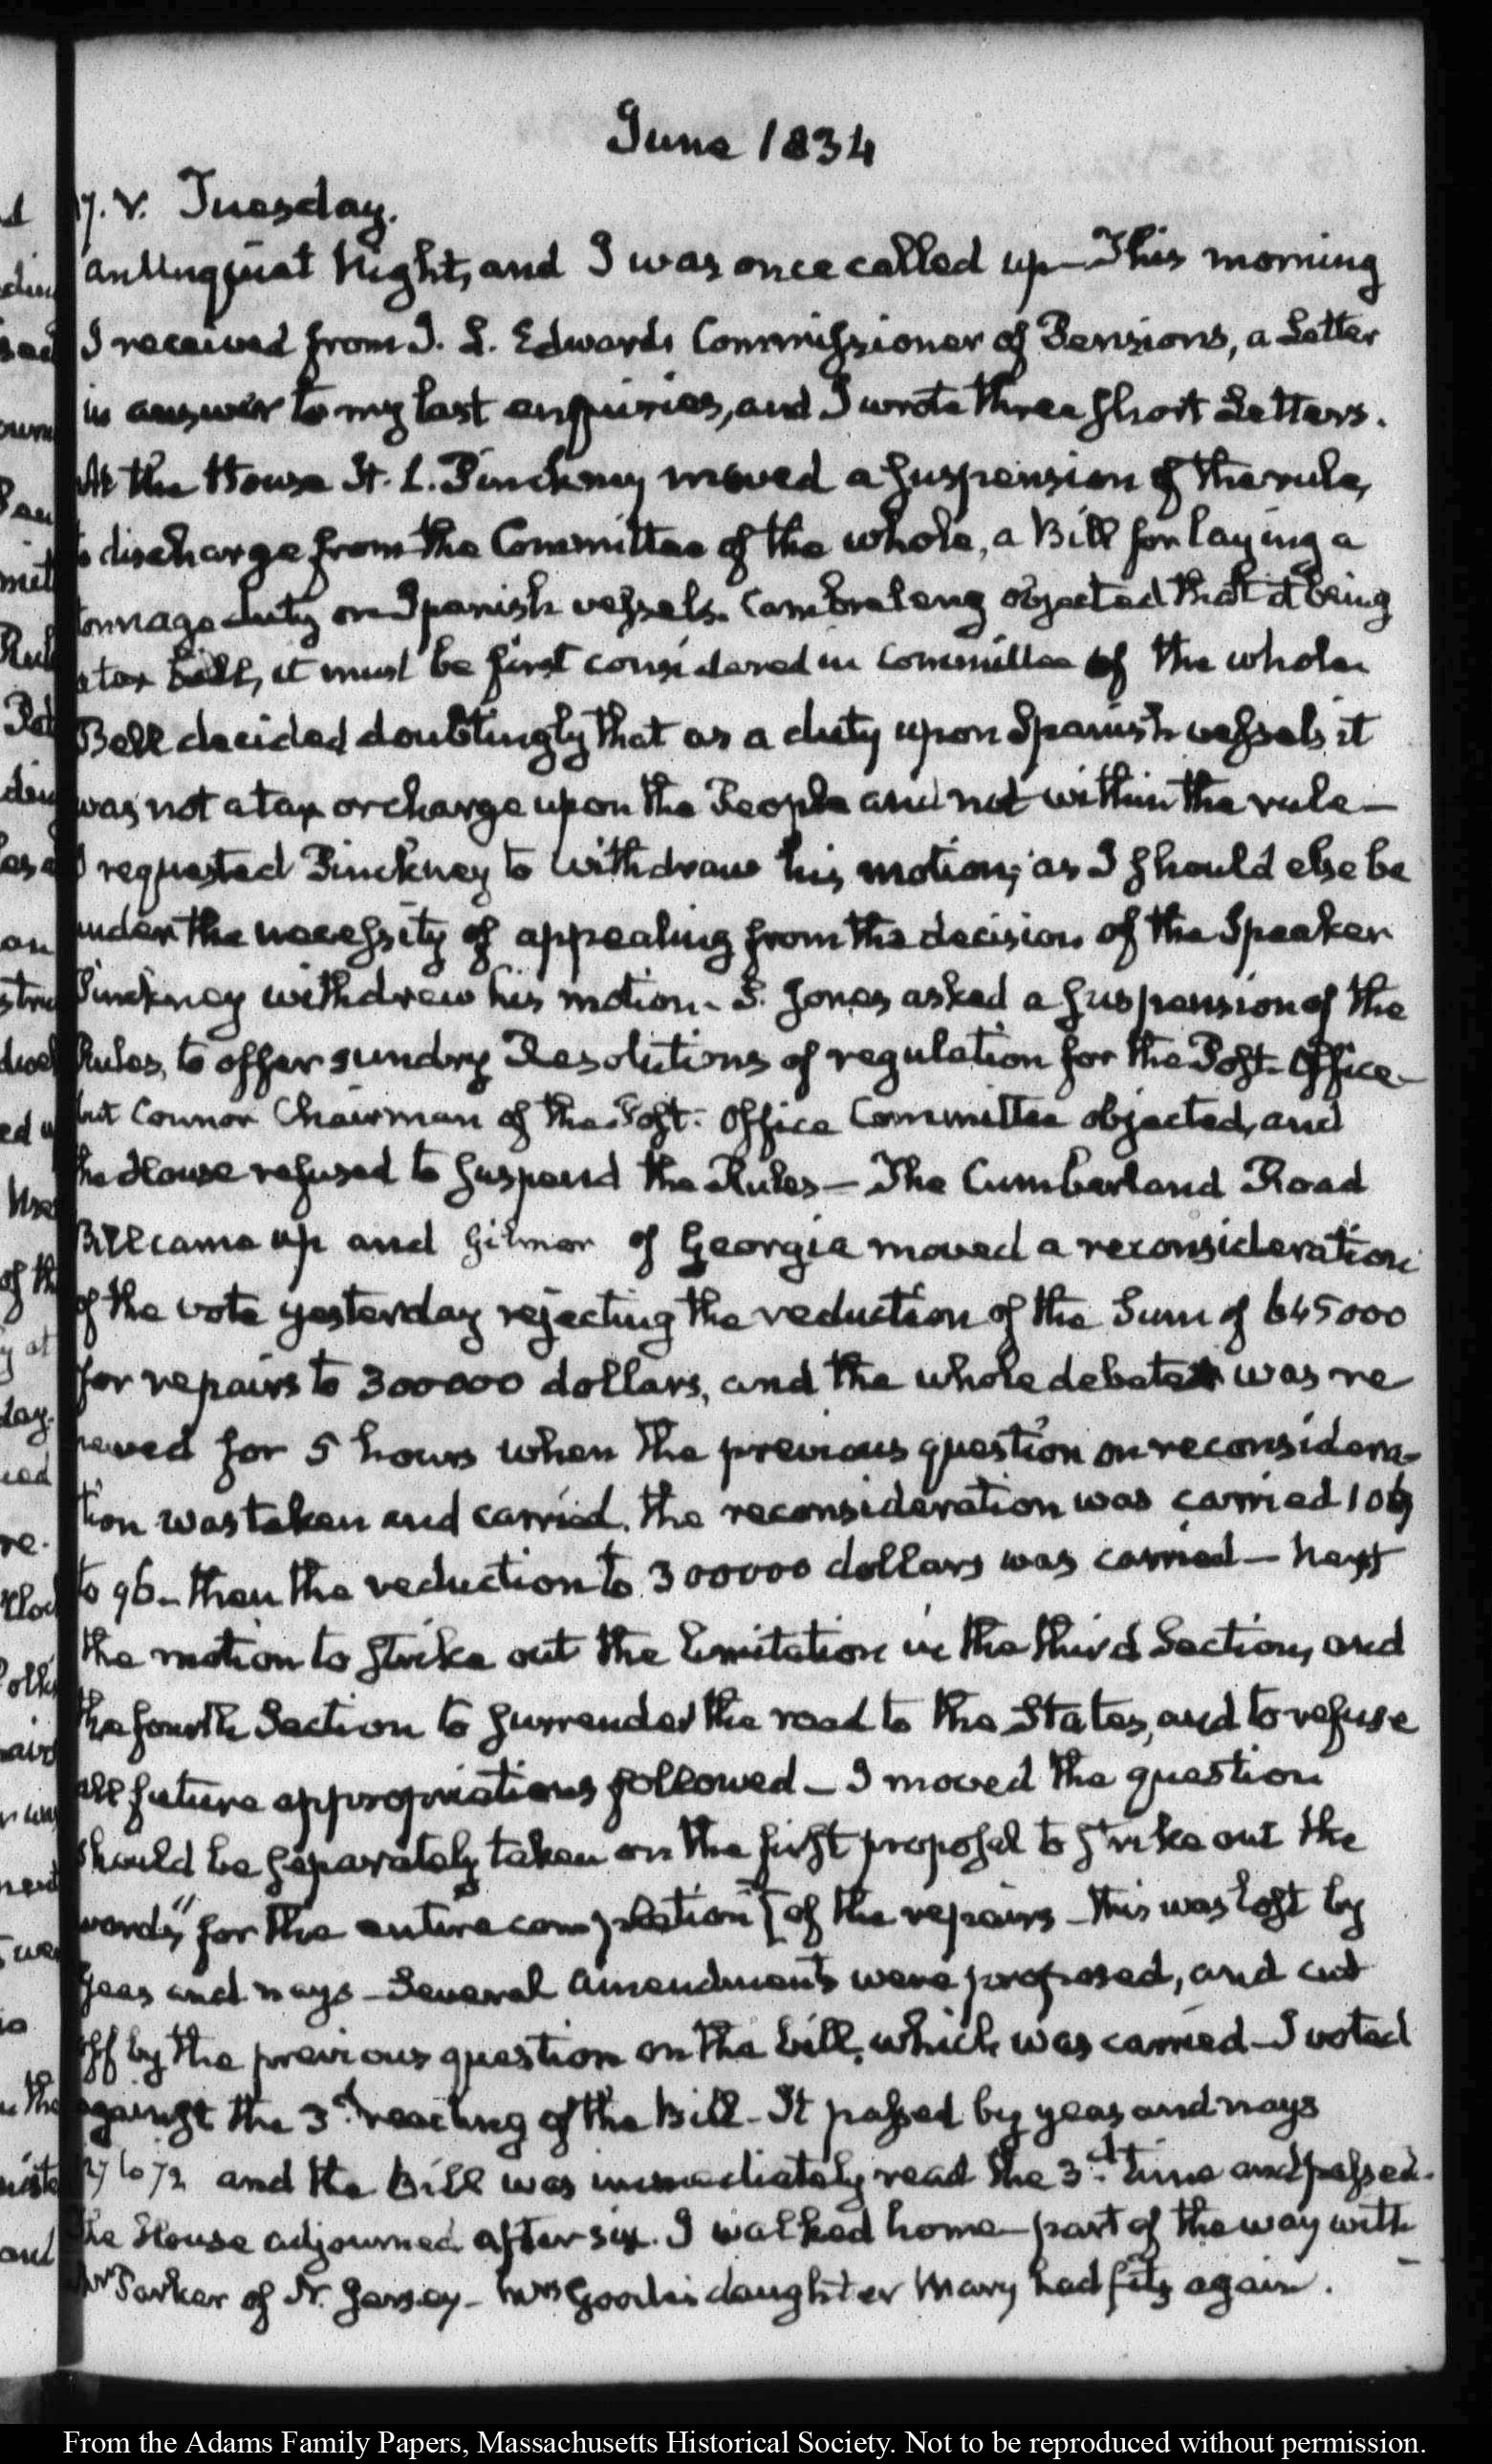 June 1834
17. V. Tuesday.
an unquiet Night, and I was once called up—This morning
I received from J. L. Edwards Commissioner of Pensions, a Letter
in answer to my last enquiries, and I wrote three short Letters.
At the House H. L. Pinckney moved a suspension of the rule,
to discharge from the Committee of the whole, a Bill for laying a
tonnage duty on Spanish vessels. Cambreleng objected that it being
a tax bill, it must be first considered in Committee of the whole.
Bell decided doubtingly that as a duty upon Spanish vessels it
was not a tax or charge upon the People and not within the rule—
I requested Pinckney to withdraw his motion; as I should else be
under the necessity of appealing from the decision of the Speaker
Pinckney withdrew his motion— S. Jones asked a suspension of the
Rules, to offer sundry Resolutions of regulation for the Post-Office—
but Connor Chairman of the Post-Office Committee objected, and
the House refused to suspend the Rules— The Cumberland Road
Bill came up and Gilmer of Georgia moved a reconsideration
of the vote yesterday rejecting the reduction of the Sum of 645000
for repairs to 300000 dollars, and the whole debate was re
newed for 5 hours when the previous question on reconsidera-
tion was taken and carried. The reconsideration was carried
to 96— then the reduction to 300000 dollars was carried— next
the motion to strike out the limitation in the third Section, and
the fourth Section to surrender the road to the States, and to refuse
all future appropriations followed— I moved the question
should be separately taken on the first proposal to strike out the
words "for the entire completion" of the repairs— this was lost by
yeas and nays— Several amendments were proposed, and cut
off by the previous question on the bill, which was carried— I voted
against the 3d. reading of the Bill— It passed by yeas and nays
to 72 and the Bill was immediately read the 3d. time and passed.
The House adjourned after six. I walked home— part of the way with
Mr Parker of N. Jersey— Mrs daughter Mary had fits again.
From the Adams Family Papers, Massachusetts Historical Society. Not to be reproduced without permission.